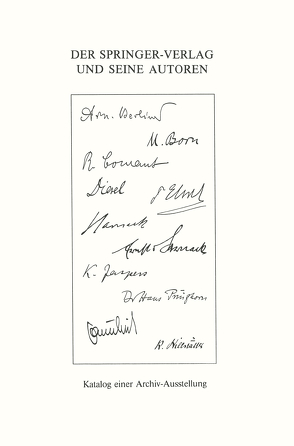 DER SPRINGER-VERLAG
UND SEINE AUTOREN
Arn. Berliner
M. Born
R. Courant
Diesel
Harnack
K. Jaspers
Dr Hans Pringsheim
R. Willstätter
Katalog einer Archiv-Ausstellung